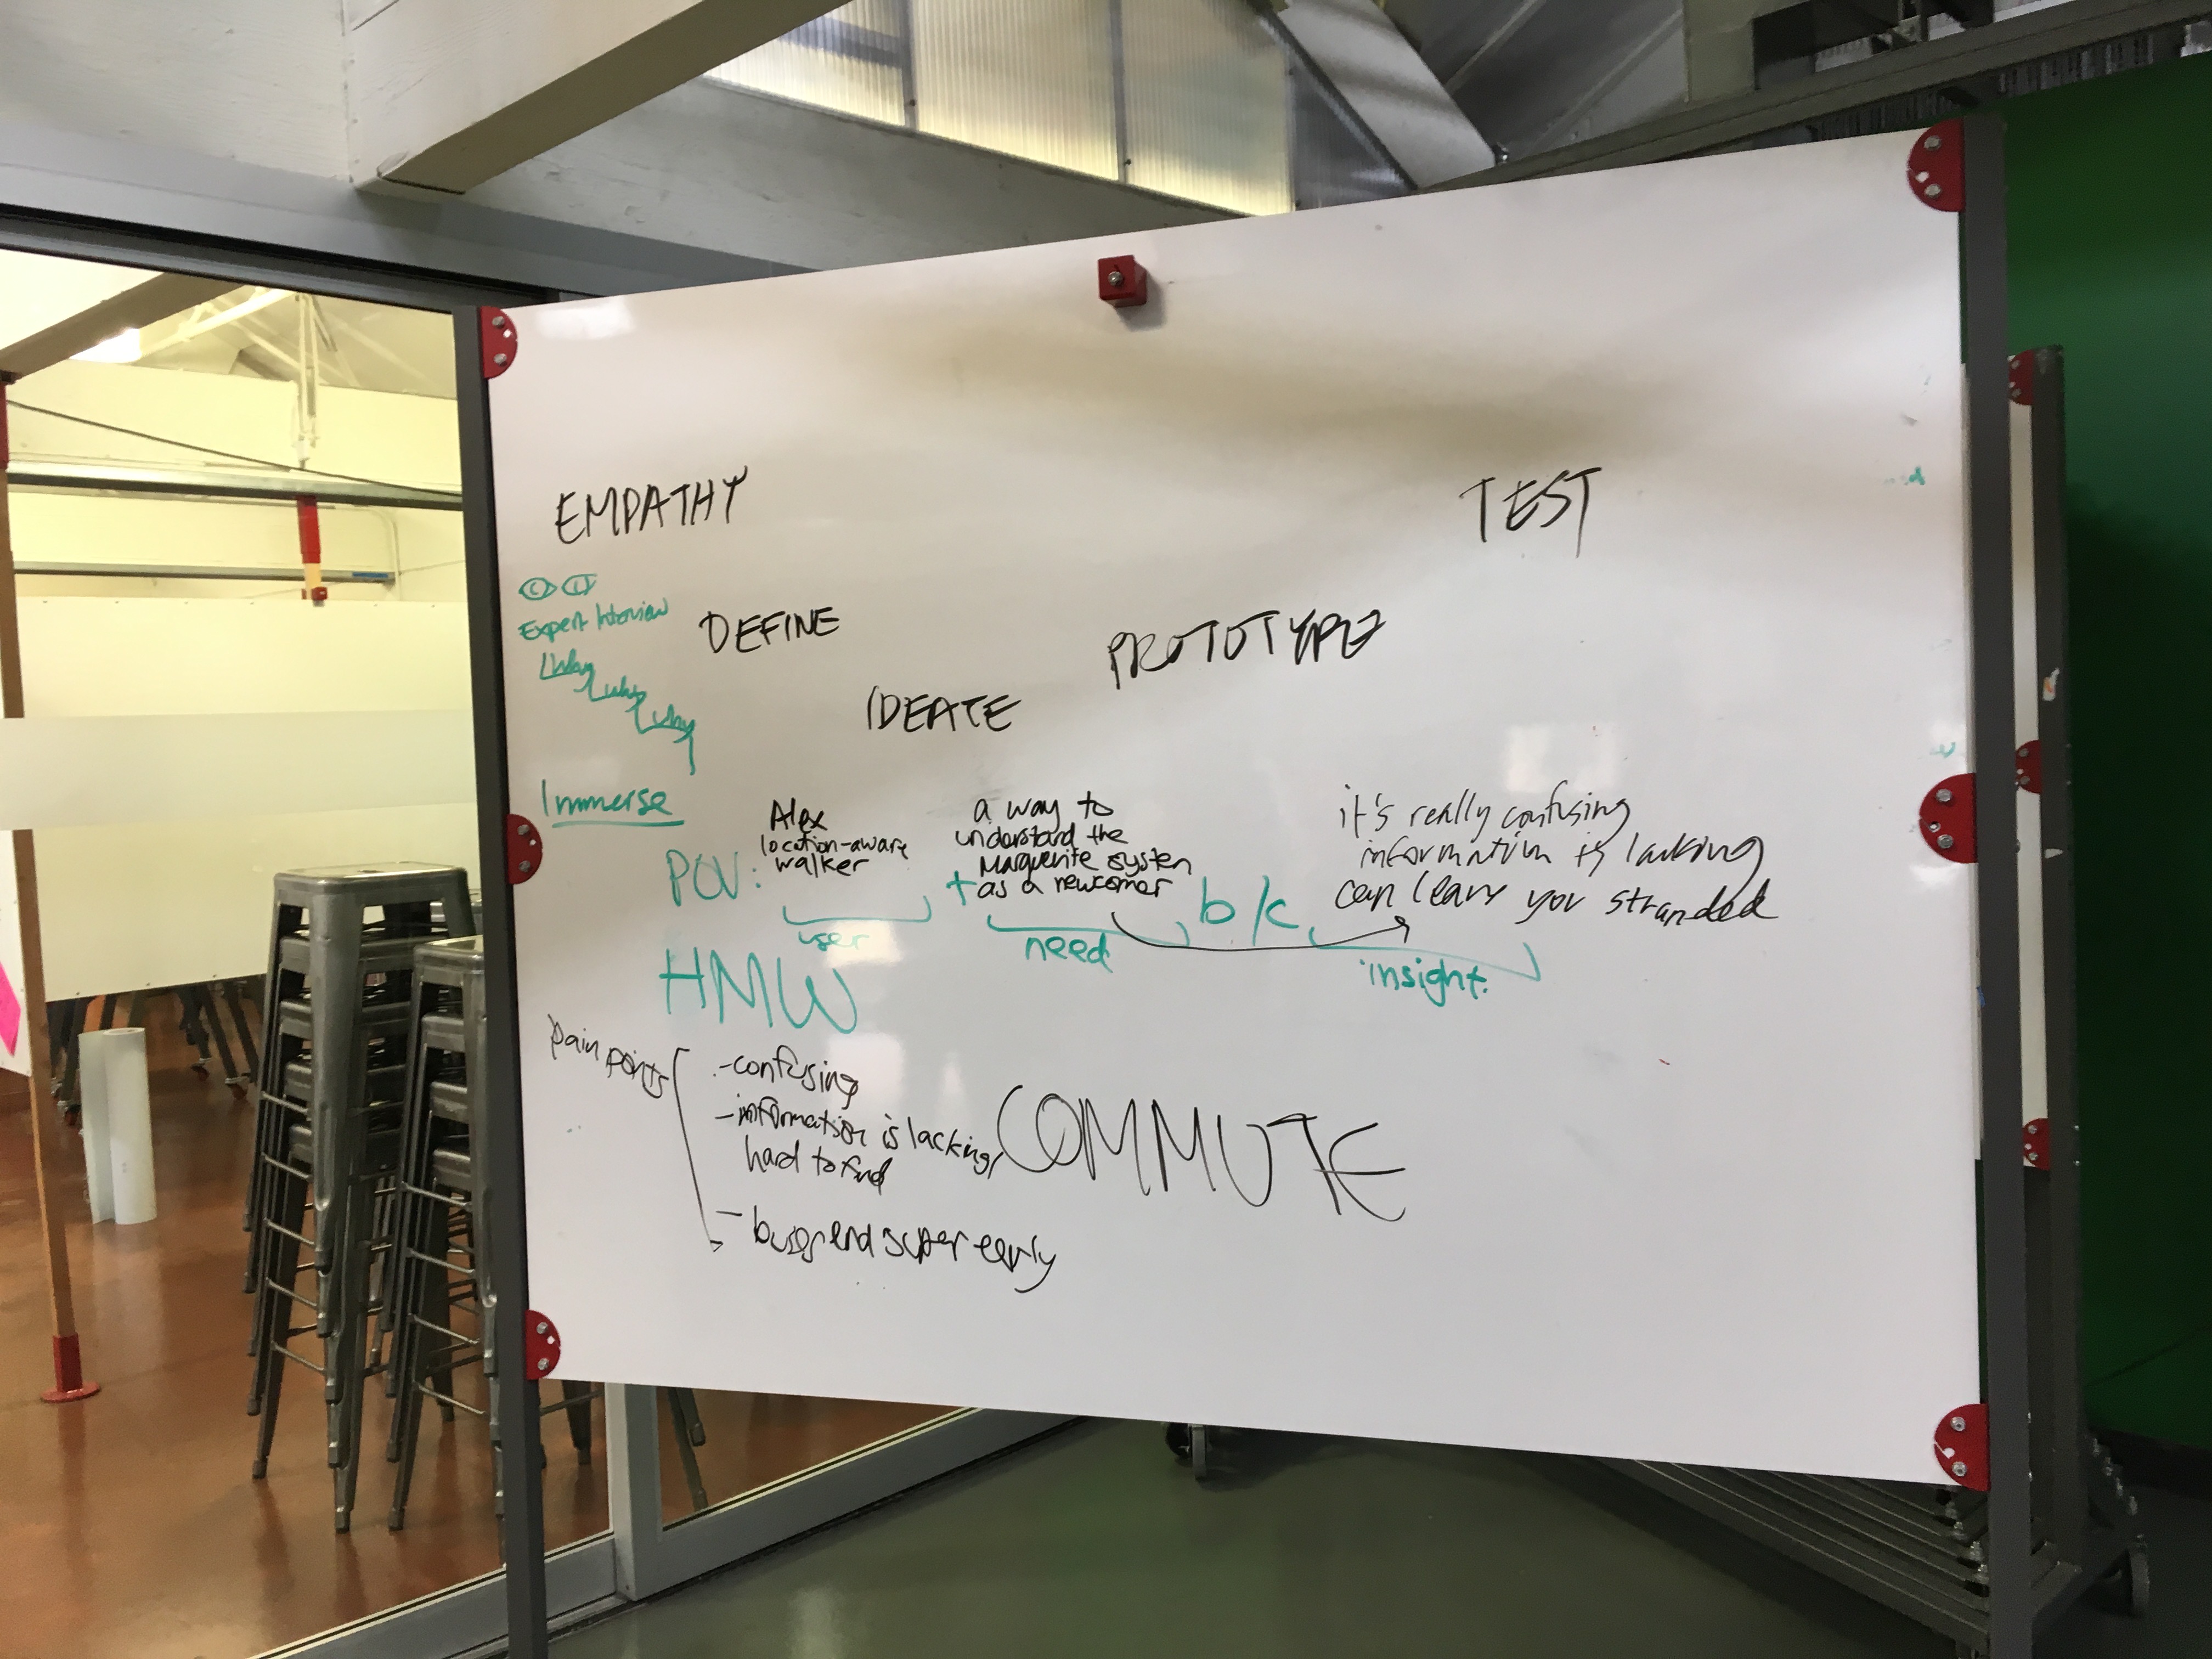 EMPATHY
TEST
Expert Interview
DEFINE
PROTOTYPE
Why
Why
Why
IDEATE
Immerse
POV:
Alex
location-aware
walker
user
a way to
understand the
Marguerite system
+ as a newcomer
need
b/c
it's really confusing
information is lacking
can leave you stranded
insight.
HMW
pain points
- confusing
- information is lacking/
hard to find
- buses end super early
COMMUTE